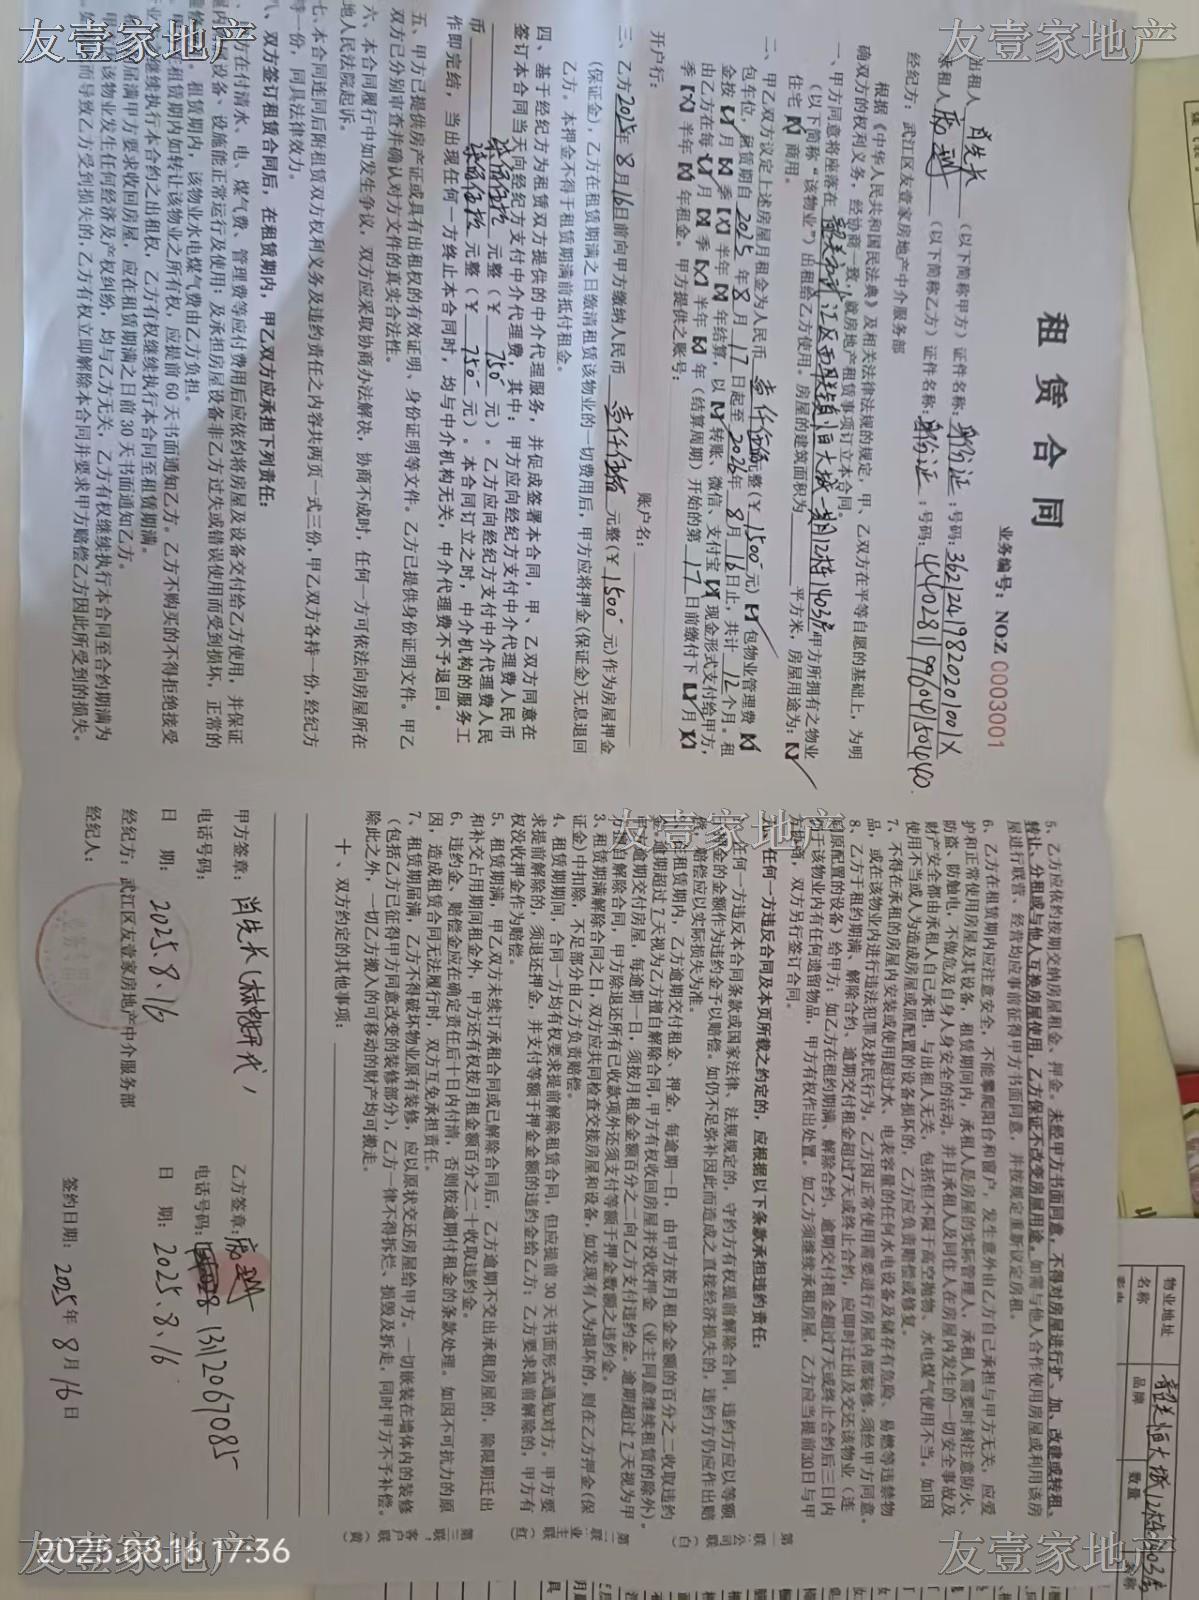 租赁合同
业务编号：NO:Z 0003001
出租人 （以下简称甲方）证件名称：身份证；号码：36212419820201001X
承租人 （以下简称乙方）证件名称：身份证；号码：440281199604150440
经纪方：武江区友壹家房地产中介服务部
根据《中华人民共和国民法典》及相关法律法规的规定，甲、乙双方在平等自愿的基础上，为明
确双方的权利义务，经协商一致，就房地产租赁事项订立本合同。
一、甲方同意将座落在 韶关市武江区西联镇恒大城一期12栋1403房 甲方所拥有之物业
（以下简称“该物业”）出租给乙方使用。房屋的建筑面积为 平方米，房屋用途为：【✓】
住宅【×】商用。
二、甲乙双方议定上述房屋月租金为人民币 壹仟伍佰 元整（￥1500元）【×】包物业管理费【×】
包车位，租赁期自 2025 年 8 月 17 日起至 2026 年 8 月 16 日止，共计 12 个月。租
金按【✓】月【×】季【×】半年【×】年结算，以【✓】转账、微信、支付宝【×】现金形式支付给甲方，
由乙方在每【✓】月【×】季【×】半年【×】年（结算周期）开始的第 17 日前缴付下【✓】月【×】
季【×】半年【×】年租金。甲方提供之账号：
开户行： 账户名：
三、乙方 2025 年 8 月 16 日前向甲方缴纳人民币 壹仟伍佰 元整（￥1500元）作为房屋押金
（保证金），乙方在租赁期满之日缴清租赁该物业的一切费用后，甲方应将押金（保证金）无息退回
乙方。本押金不得于租赁期满前抵付租金。
四、基于经纪方为租赁双方提供的中介代理服务，并促成签署本合同，甲、乙双方同意在
签订本合同当天向经纪方支付中介代理费，其中：甲方应向经纪方支付中介代理费人民币
柒佰伍拾 元整（￥750元）。乙方应向经纪方支付中介代理费人民
币 柒佰伍拾 元整（￥750元）。本合同订立之时，中介机构的服务工
作即完结，当出现任何一方终止本合同时，均与中介机构无关，中介代理费不予退回。
五、甲方已提供房产证或具有出租权的有效证明、身份证明等文件。乙方已提供身份证明文件。甲乙
双方已分别审查并确认对方文件的真实合法性。
六、本合同履行中如发生争议，双方应采取协商办法解决，协商不成时，任何一方可依法向房屋所在
地人民法院起诉。
七、本合同连同后附租赁双方权利义务及违约责任之内容共两页一式三份，甲乙双方各持一份，经纪方
持一份，同具法律效力。
八、双方签订租赁合同后，在租赁期内，甲乙双方应承担下列责任：
方在付清水、电、煤气费、管理费等应付费用后应依约将房屋及设备交付给乙方使用，并保证
屋内设备、设施能正常运行及使用；及承担房屋设备非乙方过失或错误使用而受到损坏，正常的
租赁期内，该物业水电煤气费由乙方负担。
在租赁期内如转让该物业之所有权，应提前 60 天书面通知乙方。乙方不购买的不得拒绝接受
继续执行本合约之出租权，乙方有权继续执行本合同至租赁期满。
届满甲方要求收回房屋，应在租赁期满之日前 30 天书面通知乙方。
该物业发生任何经济及产权纠纷，均与乙方无关，乙方有权继续执行本合同至合约期满为
而导致乙方受到损失的，乙方有权立即解除本合同并要求甲方赔偿乙方因此所受到的损失。
5、乙方应依约按期交纳的房屋租金、押金。未经甲方书面同意，不得对房屋进行扩、加、改建或转租、
转让、分租或与他人互换房屋使用，乙方保证不改变房屋用途。如需与他人合作使用房屋或利用该房
屋进行联营、经营均应事前征得甲方书面同意，并按规定重新议定房租。
6、乙方在租赁期内应注意安全，不能攀爬阳台和窗户，发生意外由乙方自己承担与甲方无关，应爱
护和正常使用房屋及其设备，租赁期间内，承租人是房屋的实际管理人，承租人需要时刻注意防火、
防盗、防触电，不做危及自身人身安全的活动，并且承租人及同住人在房屋内发生的一切安全事故及
财产安全都由承租人自己承担，与出租人无关，包括但不限于高空抛物、水电煤气使用不当，如因
使用不当或人为造成房屋或原配置的设备损坏的，乙方应负责赔偿或修复。
7、不得在承租的房屋内安装或使用超过水、电表容量的任何水电设备及储存有危险、易燃等违禁物
品，或在该物业内进行违法犯罪及扰民行为。乙方因正常使用需要进行房屋内部装修，须经甲方同意。
8、乙方于租约期满、解除合约、逾期交付租金超过7天或终止合约，应即时迁出及交还该物业（连
原配置的设备）给甲方；如乙方在租约期满、解除合约、逾期交付租金超过7天或终止合约后三日内
于该物业内有任何遗留物品，甲方有权作出处置。如乙方须继续承租房屋，乙方应当提前30日与甲
方协商，双方另行签订合同。
九、任何一方违反合同及本页所载之约定的，应根据以下条款承担违约责任：
任何一方违反本合同条款或国家法律、法规规定的，守约方有权提前解除合同，违约方应以等额
押金的金额作为违约金予以赔偿。如仍不足弥补因此而造成之直接经济损失的，违约方仍应作出赔
偿，赔偿应以实际损失为准。
在租赁期内，乙方逾期交付租金、押金，每逾期一日，由甲方按月租金金额的百分之二收取违约
金，逾期超过 7 天视为乙方擅自解除合同，甲方有权收回房屋并没收押金（业主同意继续租赁的除外）。
方逾期交付房屋，每逾期一日，须按月租金金额百分之二向乙方支付违约金。逾期超过 7 天视为甲
方擅自解除合同，甲方除退还所有已收款项外还须支付等额于押金数额之违约金。
3、租赁期满解除合同之日，双方应共同检查交接房屋和设备，如发现有人为损坏的，则在乙方押金（保
证金）中扣除，不足部分由乙方负责赔偿。
4、租赁期期间，合同一方均有权要求提前解除租赁合同，但应提前 30 天书面形式通知对方，甲方要
求提前解除的，须退还押金，并支付等额于押金金额的违约金给乙方；乙方要求提前解除的，甲方有
权没收押金作为赔偿。
5、租赁期满，甲乙双方未续订承租合同或已解除合同后，乙方逾期不交出承租房屋的，除限期迁出
和补交占用期间租金外，甲方还有权按月租金额百分之二十收取违约金。
6、违约金、赔偿金应在确定责任后十日内付清，否则按逾期付租金的条款处理。如因不可抗力的原
因，造成租赁合同无法履行时，双方互免承担责任。
7、租赁期届满，乙方不得破坏物业原有装修，应以原状交还房屋给甲方。一切嵌装在墙体内的装修
（包括乙方已征得甲方同意改变的装修部分），乙方一律不得拆烂、损毁及拆走，同时甲方不予补偿。
除此之外，一切乙方搬入的可移动的财产均可搬走。
十、双方约定的其他事项：
甲方签章： 乙方签章：
电话号码： 电话号码： 1312067085
日 期：2025.8.16 日 期：2025.8.16
经纪方：武江区友壹家房地产中介服务部
经纪人： 签约日期：2025年8月16日
第一联公司（白）
第二联业主（红）
第三联客户（黄）
物业地址 韶关恒大城12栋1403房
名称 品牌 数量 名称
友壹家地产
友壹家地产
友壹家地产
友壹家地产
友壹家地产
2025.08.16 17:36